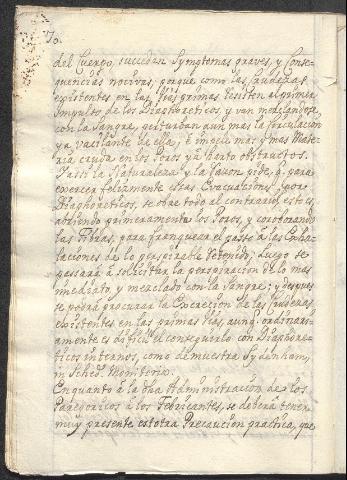 70.
del Cuerpo, succeden Symptomas graves, y Conse-
quencias nocivas, porque como las Crudezas
existentes en las vias primas resisten al primer
Impulso de los Diaphoreticos, y van mezclandose
con la Sangre, perturban aun mas la Circulacion
ya vacilante de ella, è impele mas, y mas Mate-
ria cruda en los Poros ya harto obstructos.
Y assi la Naturaleza y la razon pide, q. para
exercer felizmente estas Evacuations por
Diaphoreticos, se obre todo al contrario, esto es,
abriendo primeramente los Poros, y corroborando
las Fibras, para franquear el passo à las Exha-
laciones de lo perspirable retenido; Luego se
passarà à solicitar la perspiracion de lo mas
immediato y mezclado con la Sangre; y despues
se podrà procurar la Excrecion de las Crudezas
existentes en las primas vias, aunq. ordinaria-
mente es dificil el conseguirlo con Diaphore-
ticos internos, como demuestra Sydenham,
in Sched. Monitoria.
En quanto à la dha Administracion de los
Paregoricos à los Febricitantes, se deberà tener
muy presente estotra Precaucion practica, que